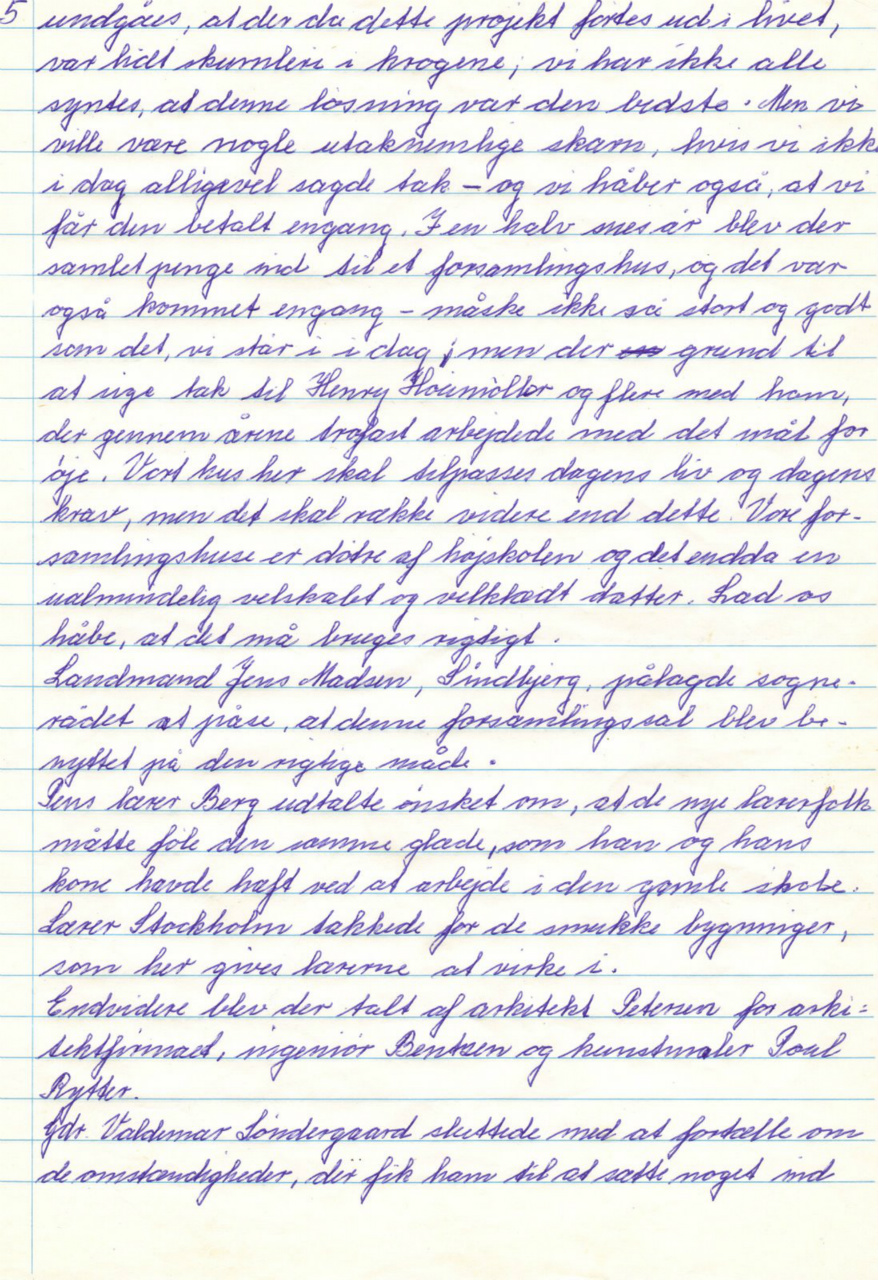 5 undgåes, at der da dette projekt førtes ud i livet,
var lidt skumleri i krogene; vi har ikke alle
syntes, at denne løsning var den bedste. Men vi
ville være nogle utaknemlige skarn, hvis vi ikke
i dag alligevel sagde tak – og vi håber også, at vi
får den betalt engang. I en halv snes år blev der
samlet penge ind til et forsamlingshus, og det var
også kommet engang – måske ikke så stort og godt
som det, vi står i i dag; men der er grund til
at sige tak til Henry Høimøller og flere med ham,
der gennem årene trofast arbejdede med det mål for
øje. Vort hus her skal tilpasses dagens liv og dagens
krav, men det skal række videre end dette. Vore for-
samlingshuse er døtre af højskolen og det endda en
ualmindelig velskabt og velklædt datter. Lad os
håbe, at det må bruges rigtigt.
Landmand Jens Madsen, Lindbjerg, pålagde sogne-
rådet at påse, at denne forsamlingssal blev be-
nyttet på den rigtige måde.
Pens lærer Berg udtalte ønsket om, at de nye lærerfolk
måtte føle den samme glæde, som han og hans
kone havde haft ved at arbejde i den gamle skole.
Lærer Stockholm takkede for de smukke bygninger,
som her gives lærerne at virke i.
Endvidere blev der talt af arkitekt Petersen for arki=
tektfirmaet, ingeniør Bentzen og kunstmaler Poul
Rytter.
Gdr. Valdemar Søndergaard sluttede med at fortælle om
de omstændigheder, der fik ham til at sætte noget ind